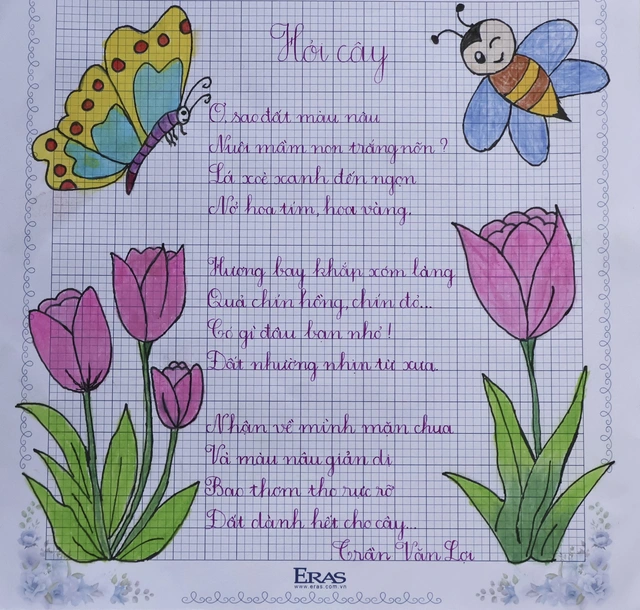 Hỏi cây
Ơ, sao đất màu nâu
Nuôi mầm non trắng nõn ?
Lá xoè xanh đến ngọn
Nở hoa tím, hoa vàng.
Hương bay khắp xóm làng
Quả chín hồng, chín đỏ...
Có gì đâu bạn nhỏ !
Đất nhường nhịn từ xưa.
Nhận về mình mặn chua
Và màu nâu giản dị
Bao thơm tho rực rỡ
Đất dành hết cho cây...
Trần Văn Lợi
ERAS
www.eras.com.vn